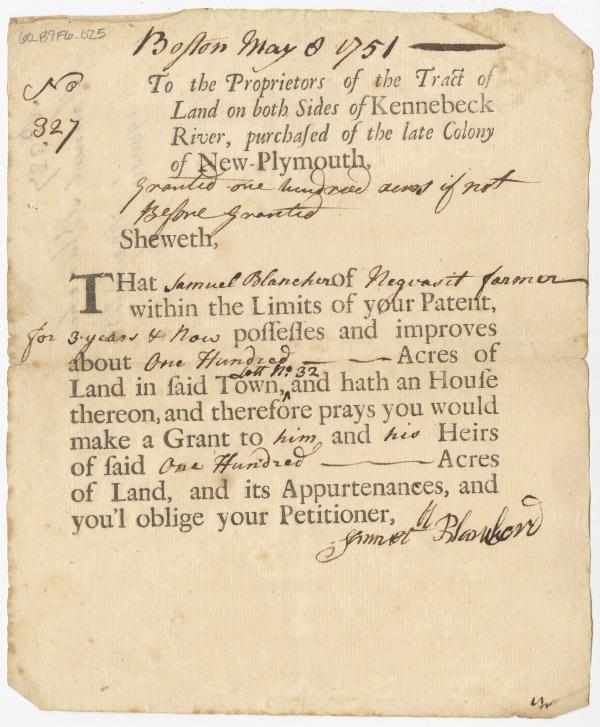 60.B9F6.025
Boston May 8 1751
No
327
To the Proprietors of the Tract of
Land on both Sides of Kennebeck
River, purchaſed of the late Colony
of New-Plymouth,
Granted one hundred acres if not
Before Granted
Sheweth,
THat Samuel Blancher of Neqvasit farmer
within the Limits of your Patent,
for 3 years & Now poſſeſſes and improves
about One Hundred Acres of
Lott No. 32
Land in ſaid Town, and hath an Houſe
thereon, and therefore prays you would
make a Grant to him and his Heirs
of ſaid One Hundred Acres
of Land, and its Appurtenances, and
you'l oblige your Petitioner,
Blanchard